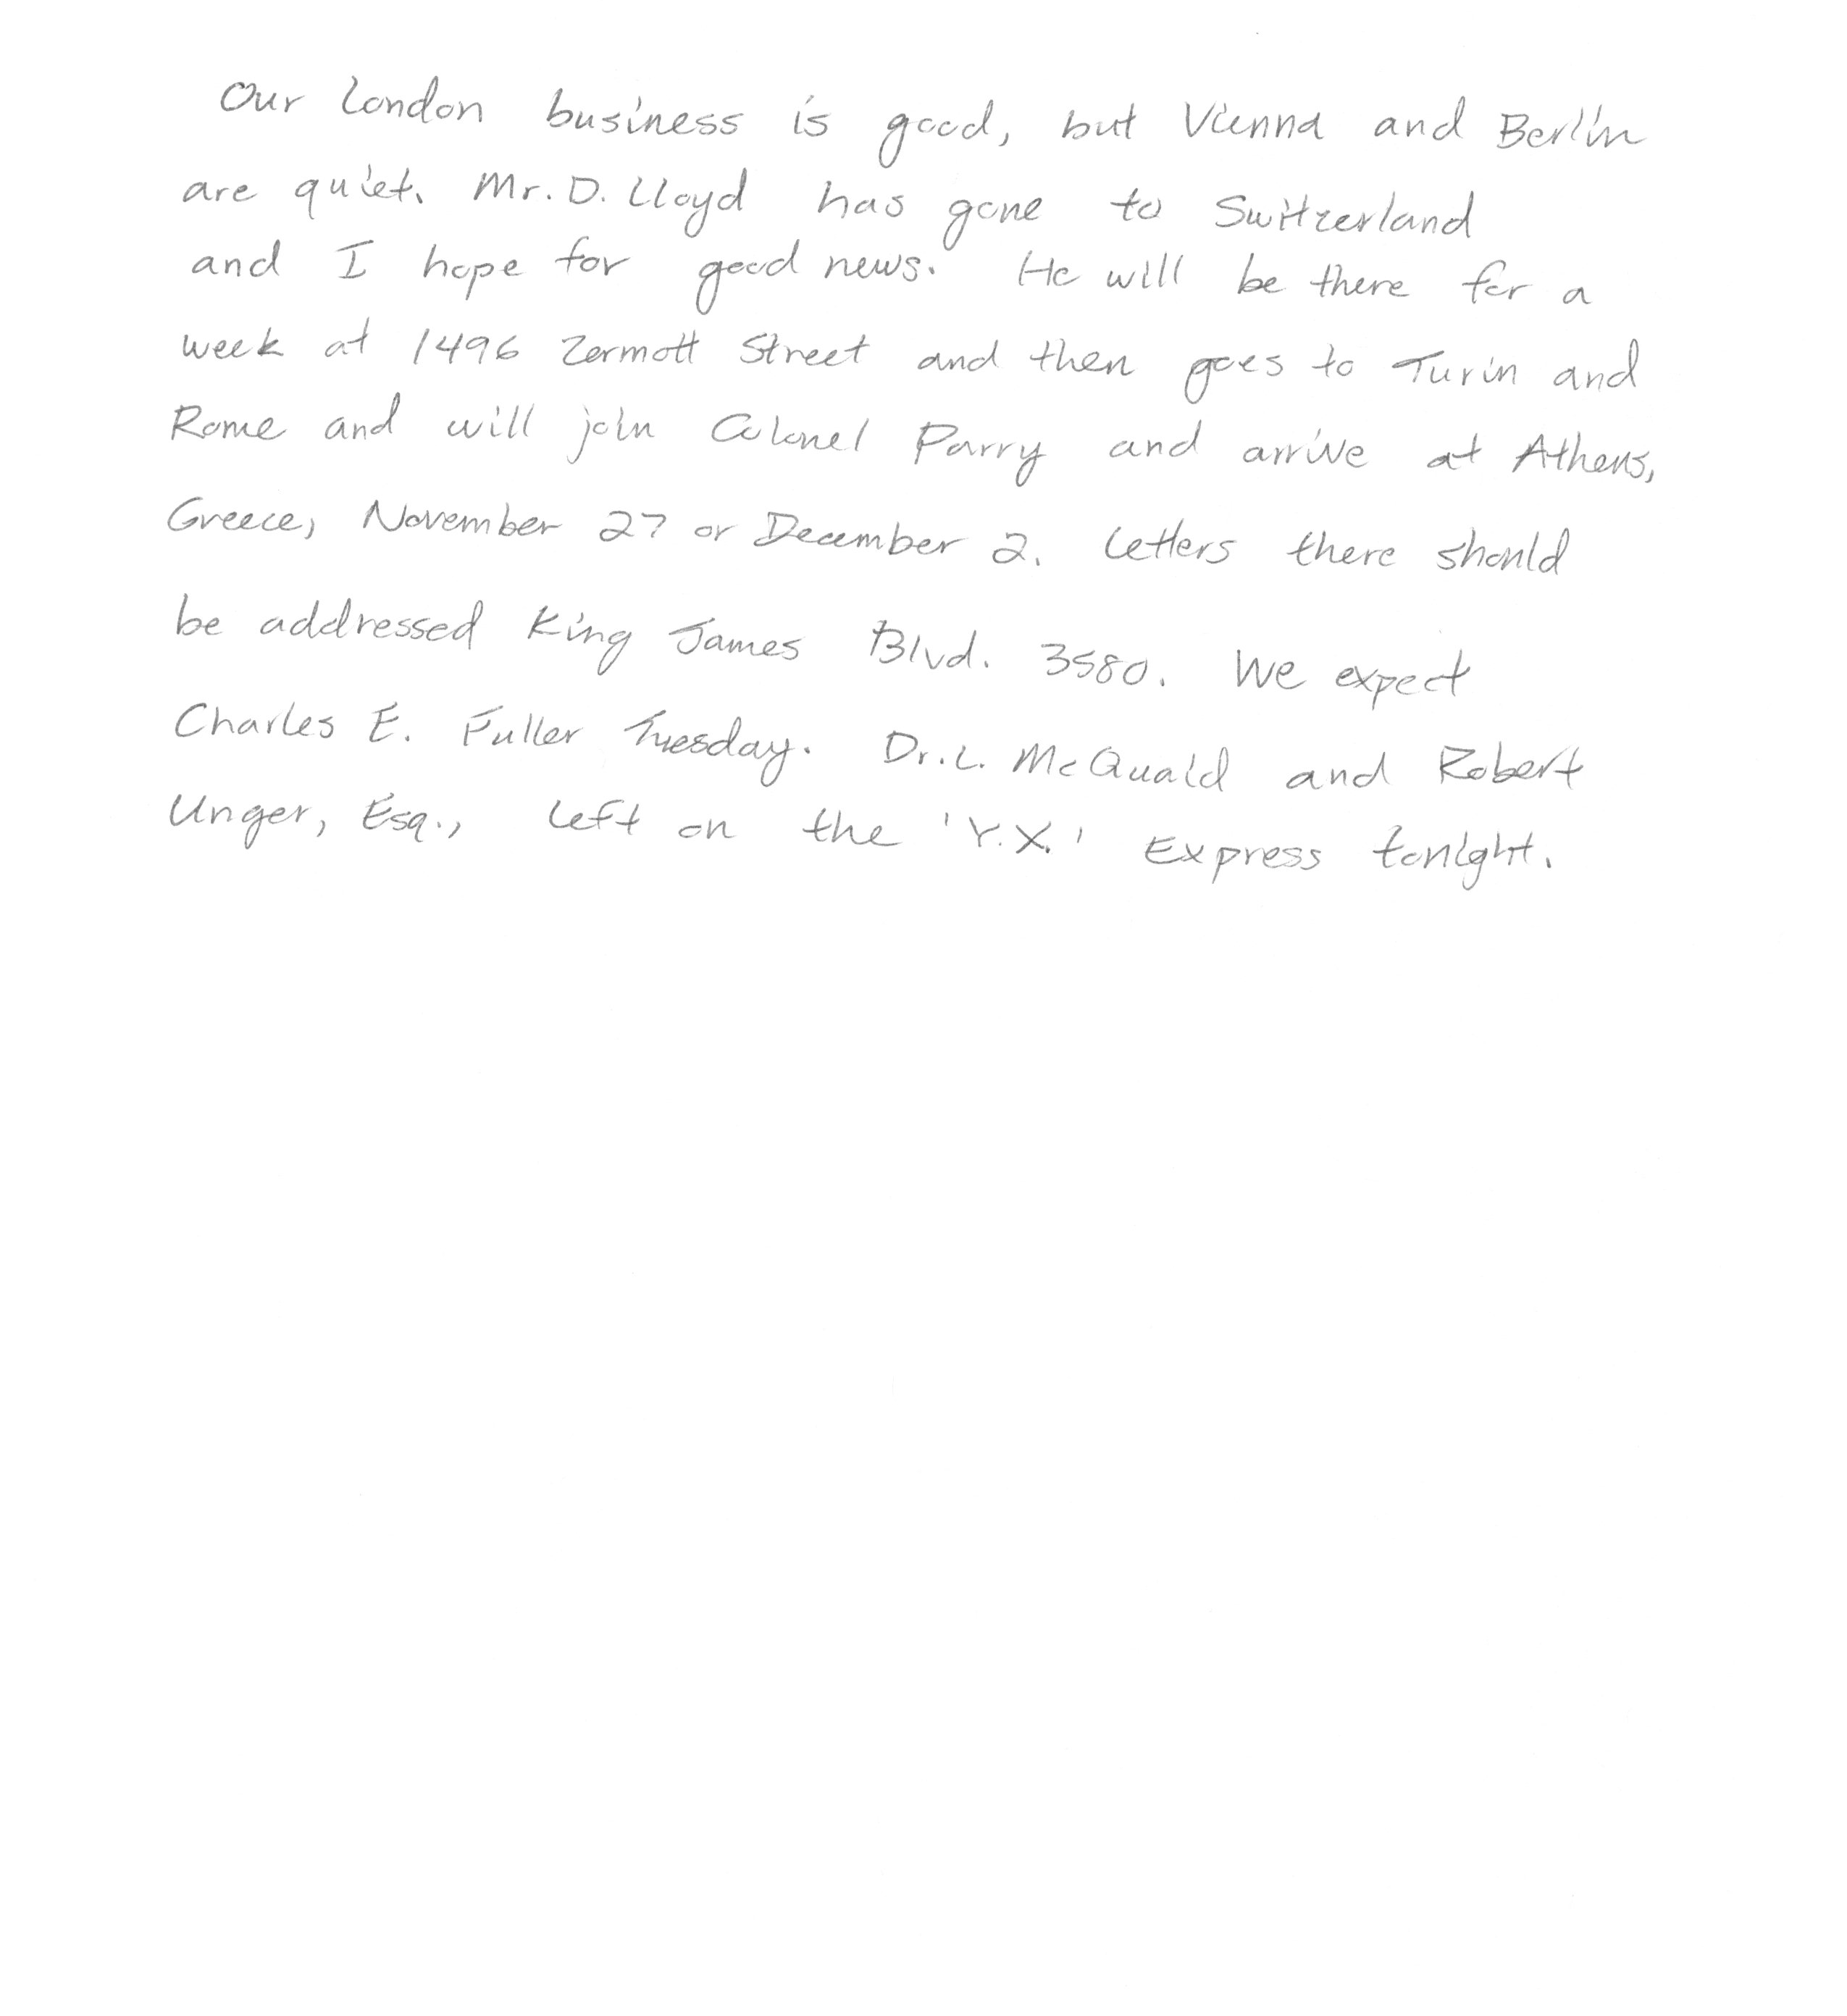 Our London business is good, but Vienna and Berlin
are quiet. Mr. D. Lloyd has gone to Switzerland
and I hope for good news. He will be there for a
week at 1496 Zermott Street and then goes to Turin and
Rome and will join Colonel Parry and arrive at Athens,
Greece, November 27 or December 2. Letters there should
be addressed King James Blvd. 3580. We expect
Charles E. Fuller Tuesday. Dr. L. McQuaid and Robert
Unger, Esq., left on the 'Y.X.' Express tonight.